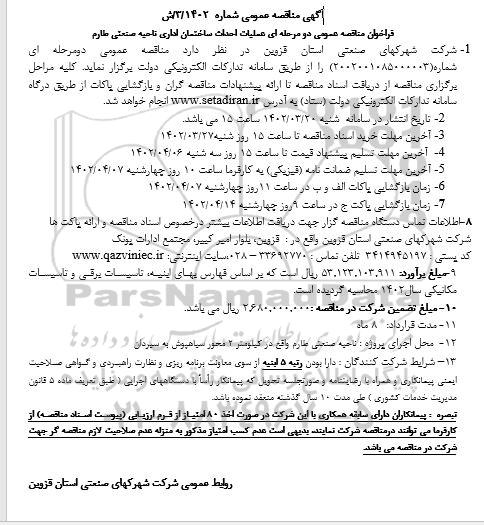 آگهی مناقصه عمومی شماره ۳/۱۴۰۲/ش
فراخوان مناقصه عمومی دو مرحله ای عملیات احداث ساختمان اداری ناحیه صنعتی طارم
1- شرکت شهرکهای صنعتی استان قزوین در نظر دارد مناقصه عمومی دومرحله ای
شماره(۲۰۰۲۰۰۱۰۸۵۰۰۰۰۰۳) را از طریق سامانه تدارکات الکترونیکی دولت برگزار نماید. کلیه مراحل
برگزاری مناقصه از دریافت اسناد مناقصه تا ارائه پیشنهادات مناقصه گران و بازگشایی پاکات از طریق درگاه
سامانه تدارکات الکترونیکی دولت (ستاد) به آدرس www.setadiran.ir انجام خواهد شد.
2- تاریخ انتشار در سامانه شنبه ۱۴۰۲/۰۳/۲۰ ساعت ۱۵ می باشد.
3- آخرین مهلت خرید اسناد مناقصه تا ساعت ۱۵ روز شنبه۱۴۰۲/۰۳/۲۷
4- آخرین مهلت تسلیم پیشنهاد قیمت تا ساعت ۱۵ روز سه شنبه ۱۴۰۲/۰۴/۰۶
5- آخرین مهلت تسلیم ضمانت نامه (فیزیکی) به کارفرما ساعت ۱۰ روز چهارشنبه ۱۴۰۲/۰۴/۰۷
6- زمان بازگشایی پاکات الف و ب در ساعت ۱۱روز چهارشنبه ۱۴۰۲/۰۴/۰۷
7- زمان بازگشایی پاکات ج در ساعت ۹روز چهارشنبه ۱۴۰۲/۰۴/۱۴
۸-اطلاعات تماس دستگاه مناقصه گزار جهت دریافت اطلاعات بیشتر درخصوص اسناد مناقصه و ارائه پاکت ها
شرکت شهرکهای صنعتی استان قزوین واقع در : قزوین، بلوار امیر کبیر، مجتمع ادارات پونک
کد پستی : ۳۴۱۴۹۴۵۱۹۷ تلفن تماس : ۳۳۶۹۲۷۷۰-۰۲۸سایت اینترنتی: www.qazviniec.ir
۹-مبلغ برآورد: ۵۳,۱۲۳,۱۰۳,۹۱۱ ریال است که بر اساس فهارس بهای ابنیه، تاسیسات برقی و تاسیسات
مکانیکی سال۱۴۰۲ محاسبه گردیده است.
۱۰-مبلغ تضمین شرکت در مناقصه :۲,۶۸۰,۰۰۰,۰۰۰ ریال می باشد.
۱۱-مدت قرارداد: ۸ ماه
۱۲- محل اجرای پروژه : ناحیه صنعتی طارم واقع در کیلومتر ۲ محور سیاهپوش به سیردان
۱۳-شرایط شرکت کنندگان : دارا بودن رتبه ۵ ابنیه از سوی معاونت برنامه ریزی و نظارت راهبردی و گواهی صلاحیت
ایمنی پیمانکاری و همراه با رضایتنامه و صورتجلسه تحویل که پیمانکار رأساً با دستگاههای اجرایی ( طبق تعریف ماده ۵ قانون
مدیریت خدمات کشوری ) طی مدت ۱۰ سال گذشته منعقد نموده باشد.
تبصره : پیمانکاران دارای سابقه همکاری با این شرکت در صورت اخذ ۸۰ امتیاز از فرم ارزیابی (پیوست اسناد مناقصه) از
کارفرما می توانند درمناقصه شرکت نمایند، بدیهی است عدم کسب امتیاز مذکور به منزله عدم صلاحیت لازم مناقصه گر جهت
شرکت در مناقصه می باشد.
روابط عمومی شرکت شهرکهای صنعتی استان قزوین